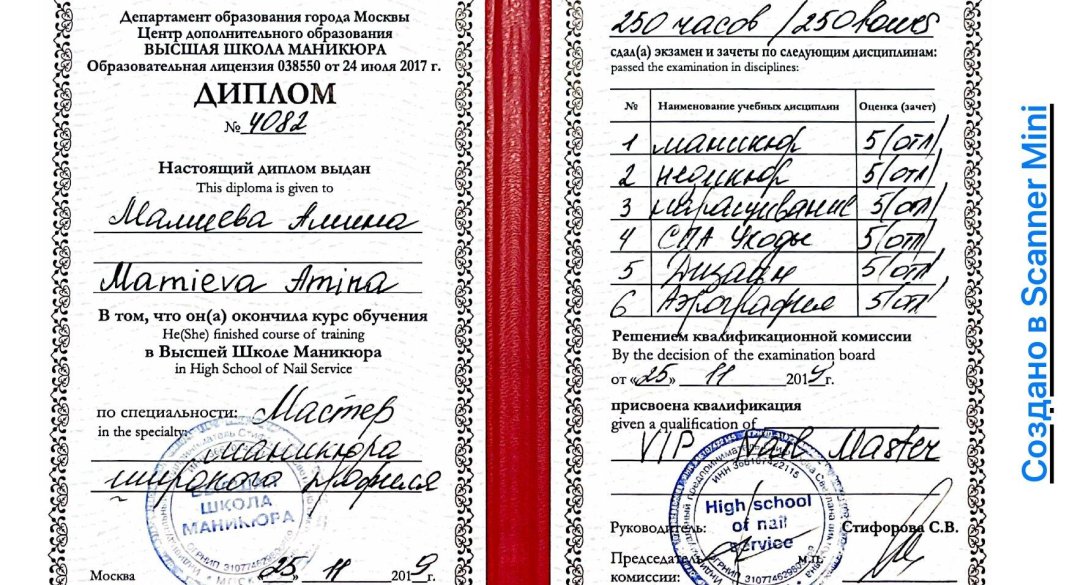 Департамент образования города Москвы
Центр дополнительного образования
ВЫСШАЯ ШКОЛА МАНИКЮРА
Образовательная лицензия 038550 от 24 июля 2017 г.
ДИПЛОМ
№ 4082
Настоящий диплом выдан
This diploma is given to
Матиева Амина
Matieva Amina
В том, что он(а) окончила курс обучения
He(She) finished course of training
в Высшей Школе Маникюра
in High School of Nail Service
по специальности: Мастер
in the specialty: маникюра
широкого профиля
ШКОЛА
МАНИКЮРА
Москва 25 11 2019 г.
250 часов / 250 hours
сдал(а) экзамен и зачеты по следующим дисциплинам:
passed the examination in disciplines:
№ Наименование учебных дисциплин Оценка (зачет)
1 маникюр 5/отл/
2 педикюр 5/отл/
3 наращивание 5/отл/
4 СПА Уходы 5/отл/
5 Дизайн 5/отл/
6 Аэрография 5/отл/
Решением квалификационной комиссии
By the decision of the examination board
от «25» 11 2019г.
присвоена квалификация
given a qualification of
VIP Nail Master
High school
of nail
service
Руководитель: Стифорова С.В.
Председатель м.п.
комиссии:
Создано в Scanner Mini